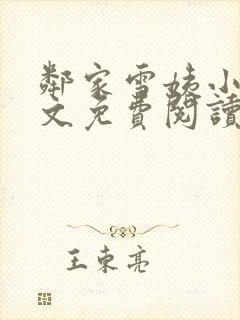 鄰家雪姨小
文免費閱讀
王東亮